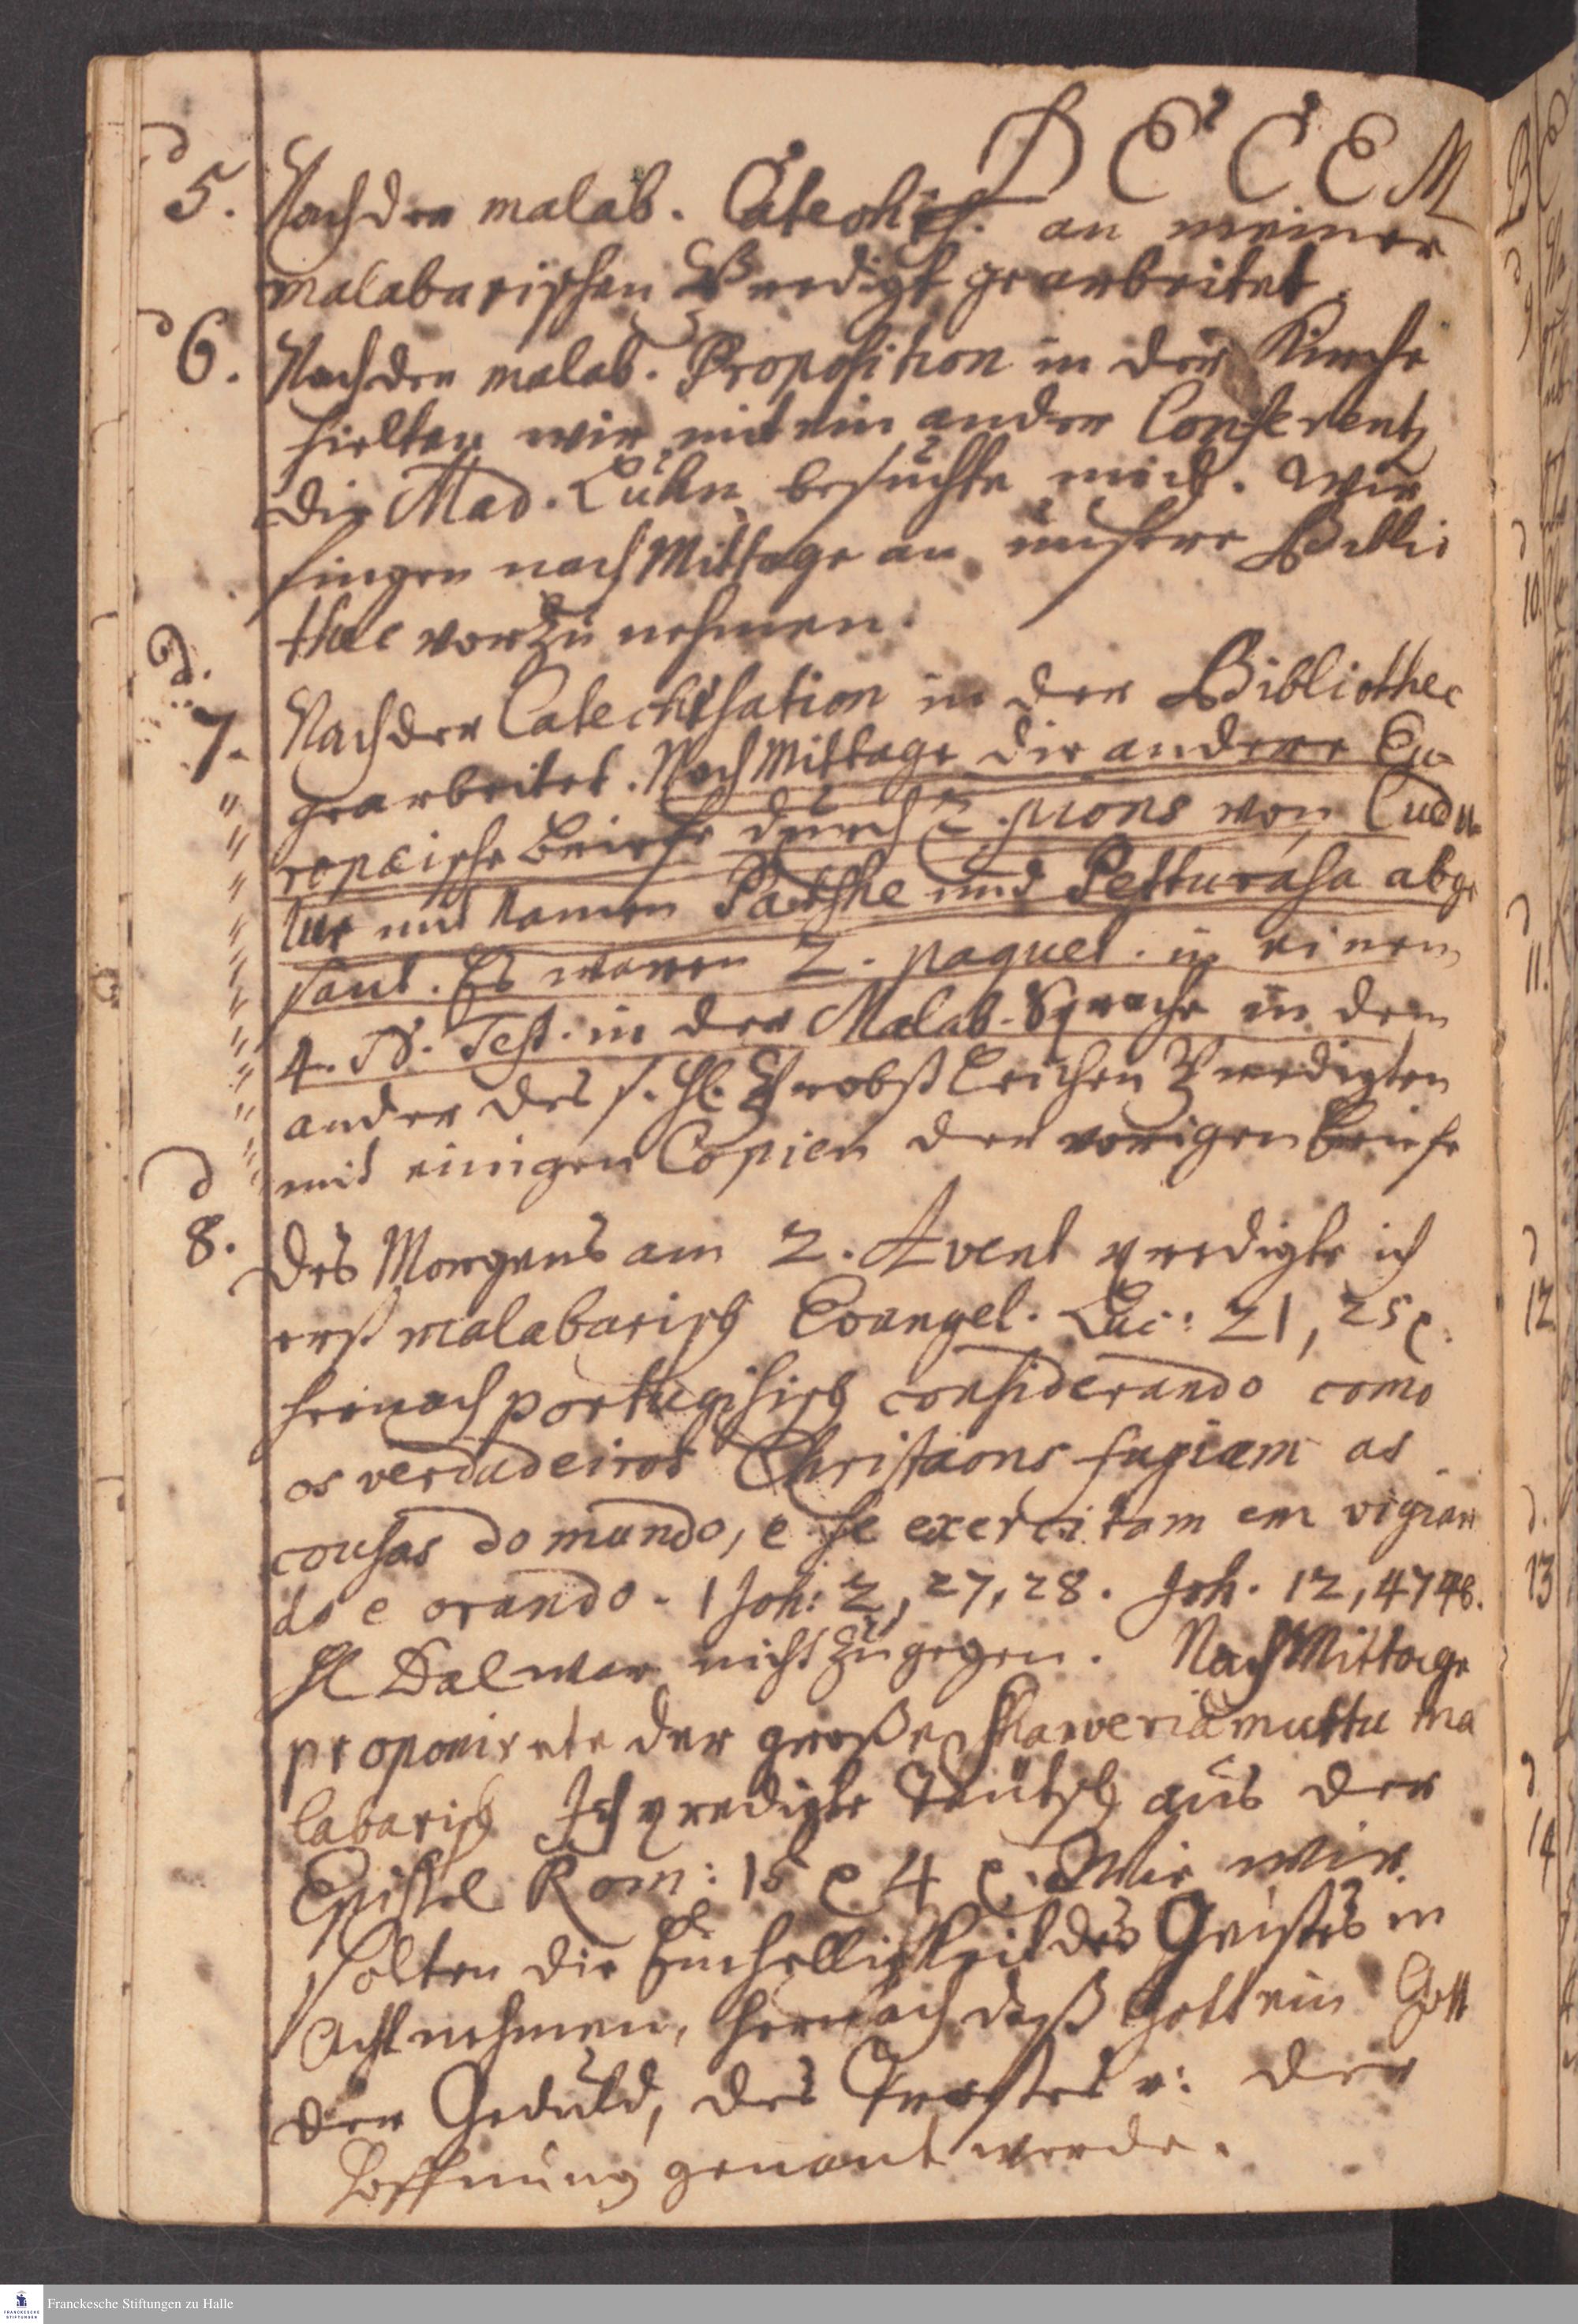 DECEM
d
5. Nach der malab. Catechis. an meiner
malabarischen Predigt gearbeitet.
d
6. Nach der malab. Proposition in der Kirche
hielten wir mit ein ander Conferentz
die Mad. Lükn besuchte mich. Wir
fingen nach Mittage an unsere Biblio
thec vorzunehmen.
d.
7. Nach der Catechisation in der Bibliothec
gearbeitet. Nach Mittage die andere Eu-
ropæische Briefe durch 2. pions von Cudu
lur mit Namen Patshe und Petturasa abge
sant. Es waren 2. paquet. in einem
4. N. Test. in der Malab. Sprache in dem
ander des s. H. Probst Leichen Predigten
mit einigen Copien der vorigen Briefe
d
8. Des Morgens am 2. Avent predigte ich
erst malabarisch Evangel. Luc: 21, 25 p.
hernach portugisisch considerando como
os verdadeiros Christaons fugiam as
cousas do mundo, e se exercitam em vigian
do e orando. 1 Joh: 2, 27, 28. Joh. 12, 47 48.
H Dal war nicht zugegen. Nach Mittage
proponirete der große Shaweriamuttu ma
labarisch Ich predigte Teutsch aus der
Epistel Rom: 15 p 4 p. Wie wir
solten die Einhelligkeit des Geistes in
Acht nehmen, hernach daß Gott ein Gott
der Geduld, des Trostes u: der
Hoffnung genant werde.
B
d
9
d
10.
d
11.
d
12
d.
13
d
14
Franckesche Stiftungen zu Halle